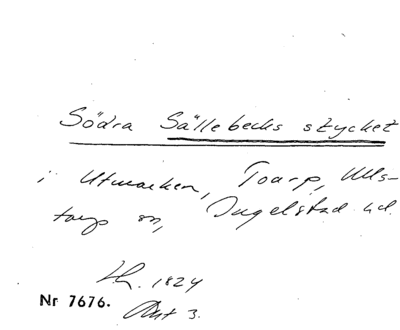 Södra Sällebecks stycket
i Utmarken, Toarp, Ulls-
torp sn, Ingelstad hd.
Lh. 1824
Akt 3.
Nr 7676.